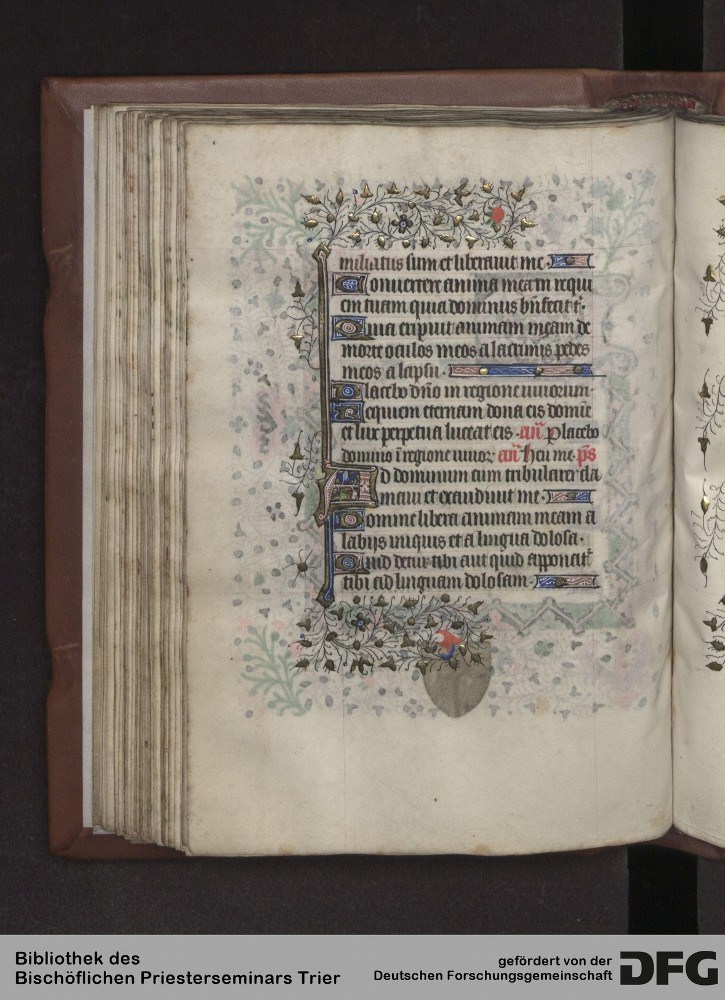 miliatus sum et liberauit me
Conuertere anima mea in requi
em tuam quia dominus bn̄fecit t᷑
Quia eripuit animam meam de
morte oculos meos a lacrimis pedes
meos a lapsu
Placebo dn̄o in regione uiuorum
Requiem eternam dona eis domīe
et lux perpetua luceat eis · an̄ Placebo
domino ī regione uiuor᷑ an̄ Heu me p̄s
Ad dominum cum tribularer cla
maui et exaudiuit me
Domine libera animam meam a
labijs iniquis et a lingua dolosa ·
Quid detur tibi aut quid apponat᷑
tibi ad linguam dolosam
Bibliothek des
Bischöflichen Priesterseminars Trier
gefördert von der
Deutschen Forschungsgemeinschaft
DFG